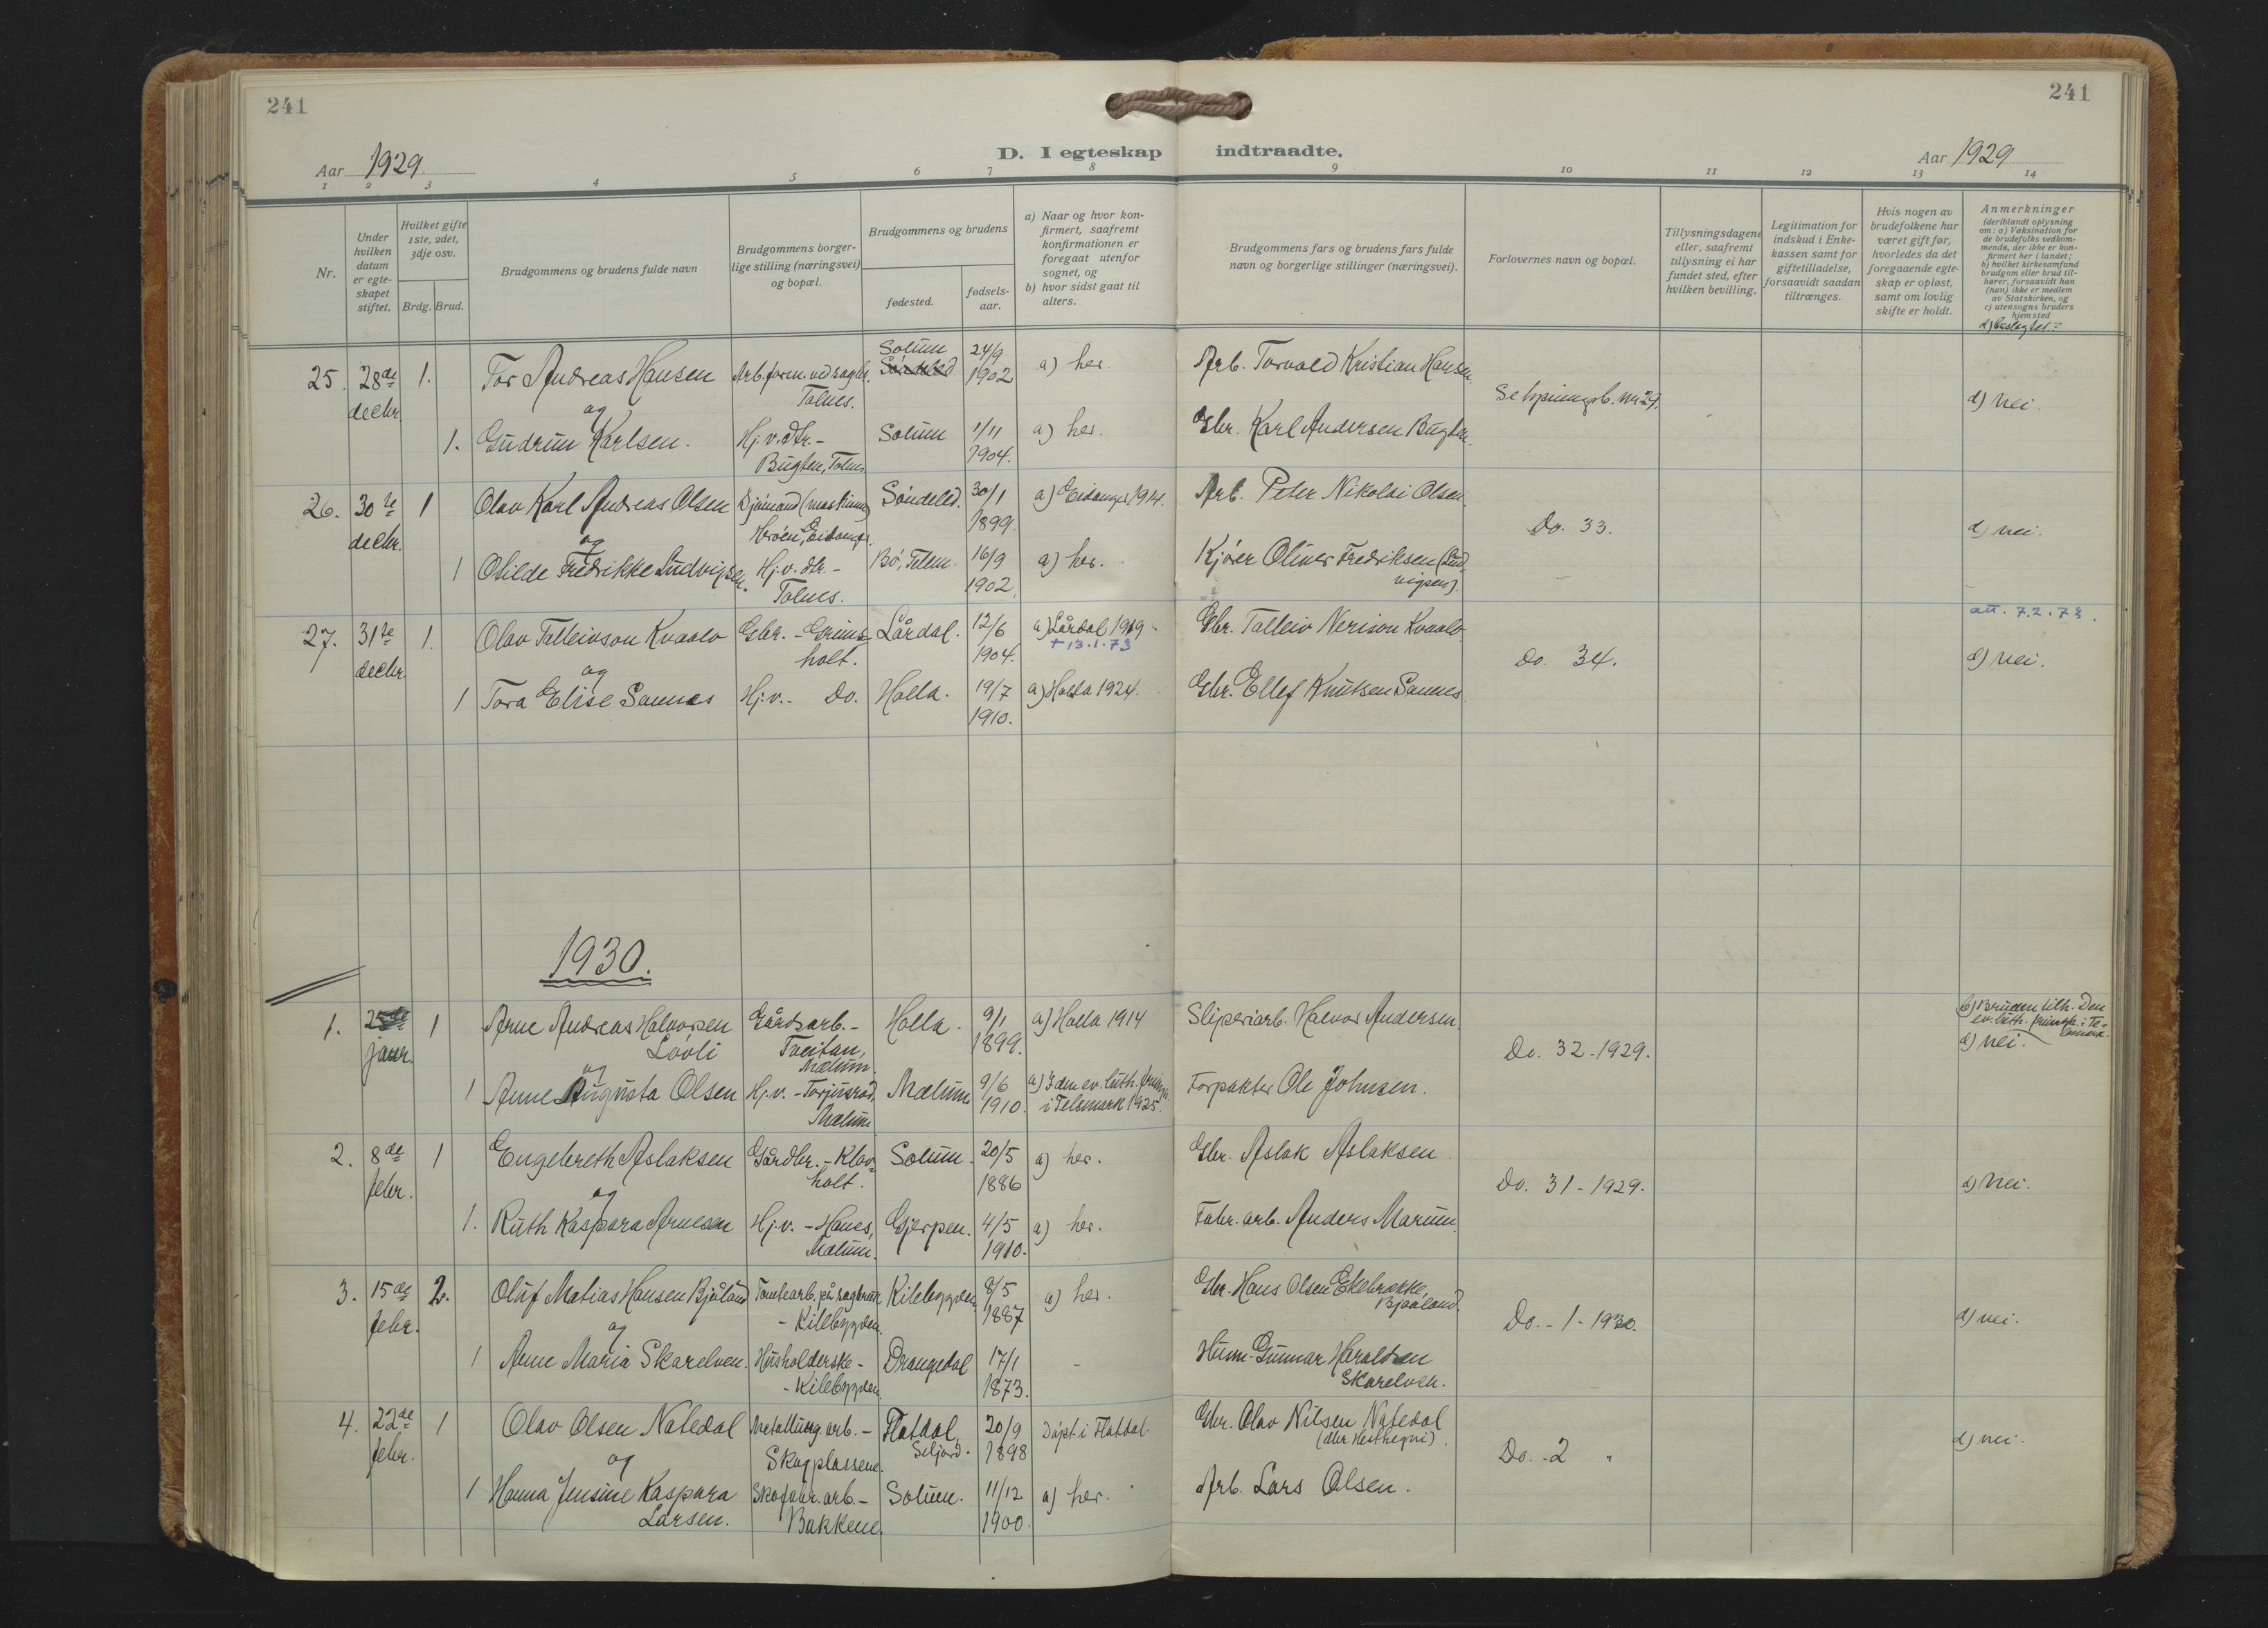 241
241
Aar 1929.
D. I egteskap indtraadte.
Aar 1929
1 2 3 4 5 6 7 8 9 10 11 12 13 14
Nr.
Under hvilken datum er egte-skapet stiftet.
Hvilket gifte 1ste, 2det, 3dje osv.
Brdg. Brud.
Brudgommens og brudens fulde navn
Brudgommens borger-lige stilling (næringsvei) og bopæl.
Brudgommens og brudens
fødested.
fødsels-aar.
a) Naar og hvor kon-firmert, saafremt konfirmationen er foregaat utenfor sognet, og
b) hvor sidst gaat til alters.
Brudgommens fars og brudens fars fulde navn og borgerlige stillinger (næringsvei).
Forlovernes navn og bopæl.
Tillysningsdagene eller, saafremt tillysning ei har fundet sted, efter hvilken bevilling.
Legitimation for indskud i Enke-kassen samt for giftetilladelse, forsaavidt saadan tiltrænges.
Hvis nogen av brudefolkene har været gift før, hvorledes da det foregaaende egte-skap er opløst, samt om lovlig skifte er holdt.
Anmerkninger
(deriblandt oplysning om: a) Vaksination for de brudefolks vedkom-mende, der ikke er kon-firmert her i landet;
b) hvilket kirkesamfund brudgom eller brud til-hører, forsaavidt han (hun) ikke er medlem av Statskirken, og
c) utensogns bruders hjemsted
d) beslegtet?
25. 28de decbr. 1. Tor Andreas Hansen Arb.form. ved sagbr. Tolnes. Solum 24/9 1902 a) her. Arb. Torvald Kristian Hansen
og
Se lysningsb. nr. 29. d) nei.
1. Gudrun Karlsen. Hj.v. dtr. - Bugten, Tolnes Solum 1/11 1904. a) her. Gbr. Karl Andersen Bugten.
26. 30te decbr. 1 Olav Karl Andreas Olsen Sjømand (maskinm) Herøen, Eidanger. Søndeled. 30/1 1899. a) Eidanger 1914. Arb. Peter Nikolai Olsen.
og
Do. 33. d) nei.
1 Otilde Fredrikke Ludvigsen. Hj.v. dtr. - Tolnes. Bø, Telem. 16/9 1902. a) her. Kjører Oliver Fredriksen (Lud-vigsen).
att. 7.2.73.
27. 31te decbr. 1. Olav Talleivson Kvaalo Gbr. - Grims-holt. Lårdal. 12/6 1904. a) Lårdal 1919. Gbr. Talleiv Nerison Kvaalo.
+ 13.1.73
og
Do. 34. d) nei.
1 Tora Elise Sannes Hj.v. - Do. Holla. 19/7 1910. a) Holla 1924. Gbr. Ellef Knutsen Sannes.
1930.
1. 25de januar. 1 Arne Andreas Halvorsen Løvli Gårdsarb. - Tveitan, Mælum. Holla. 9/1 1899. a) Holla 1914 Sliperiarb. Halvor Andersen.
og
Do. 32 - 1929. b) Bruden tilh. Den ev. luth. frimgh. i Te-lemark. d) nei.
1 Anne Augusta Olsen Hj.v. - Torjusrød, Mælum Mælum 9/6 1910. a) I den ev. luth. frimgh. i Telemark 1925. Forpakter Ole Johnsen.
2. 8de febr. 1 Engebreth Aslaksen Gårdbr. - Klov-holt. Solum. 20/5 1886 a) her. Gbr. Aslak Aslaksen.
og
Do. 31 - 1929. d) nei.
1. Ruth Kaspara Arnesen Hj.v. - Hanes, Mælum. Gjerpen. 4/5 1910. a) her. Fabr. arb. Anders Marum.
3. 15de febr. 2. Oluf Matias Hansen Bjåland Tomtearb. på sagbruk - Kilebygden. Kilebygden 9/5 1887 a) her. Gbr. Hans Olsen Ekebrække, Bjaaland.
og
Do. - 1 - 1930. d) nei.
1 Anne Maria Skarelven. Husholderske - - Kilebygden. Drangedal 17/1 1873. - Husm. Gunnar Haraldsen Skarelven.
4. 22de febr. 1 Olav Olsen Natedal Metallurg. arb. - Skogplassene. Flatdal, Seljord. 20/9 1898 Døpt i Flatdal. Gbr. Olav Nilsen Natedal (eller Hesthegni).
og
Do. - 2 " d) nei.
1 Hanna Jensine Kaspara Larsen. Skofabr. arb. - Bakkene. Solum. 11/12 1900. a) her. Arb. Lars Olsen.